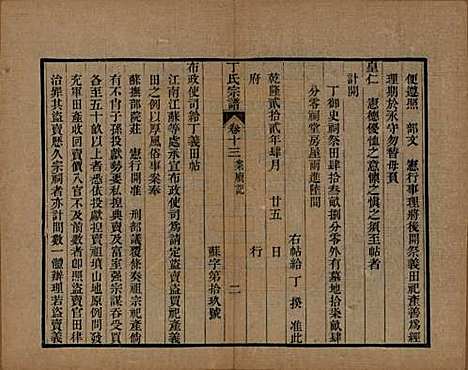 便遵照　部文　憲行事理將後開祭義田祀產善為經
理期於永守勿替毋貽
皇仁　憲德優恤之意愼之愼之須至帖者
計開
丁御史祠祭田肆拾叁畝捌分零外有墓地拾柒畝肆
分零祠堂房屋兩進陸間
右帖給丁　撰　准此
乾隆貳拾貳年肆月　廿五　日
府　　行
丁氏宗譜　卷十三　案牘記　二
蘇字第拾玖號
布政使司給丁義田帖
江南江蘇等處承宣布政使司為請定盜賣盜買祀產義
田之例以厚風俗事案奉
蘇撫部院莊　憲行開准　刑部議覆條奏祖宗祀產倘
有不肖子孫投獻勢要私捏典賣及富室強宗謀吞受買
各至五十畝以上者悉依投獻捏賣祖墳山地原例問發
充軍田產收回賣價入官不及前數者卽照盜賣官田律
治罪其盜賣歷久宗祠者亦計間數一體辦理若盜賣義